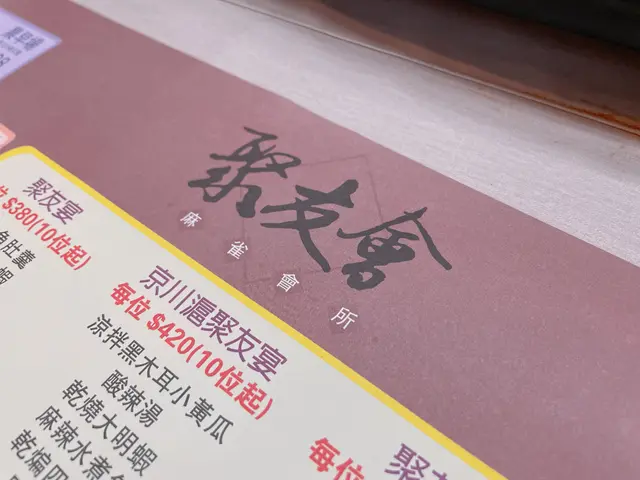 聚友會
麻雀會所
聚友宴
$380(10位起)
京川滬聚友宴
每位 $420(10位起)
涼拌黑木耳小黃瓜
酸辣湯
乾燒大明蝦
麻辣水煮
乾煸四
聚友
每位